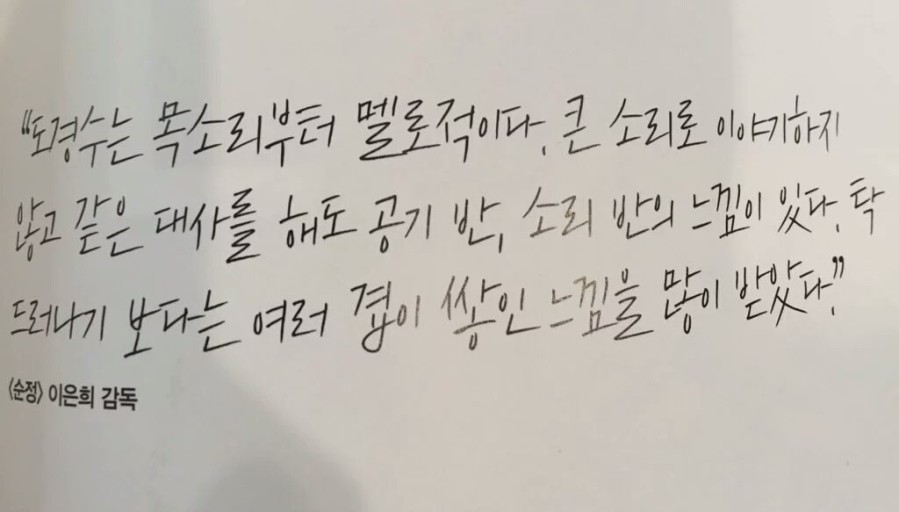 "도경수는 목소리부터 멜로적이다. 큰 소리로 이야기하지
않고 같은 대사를 해도 공기 반, 소리 반의 느낌이 있다. 탁
드러나기 보다는 여러 겹이 쌓인 느낌을 많이 받았다."
<순정> 이은희 감독